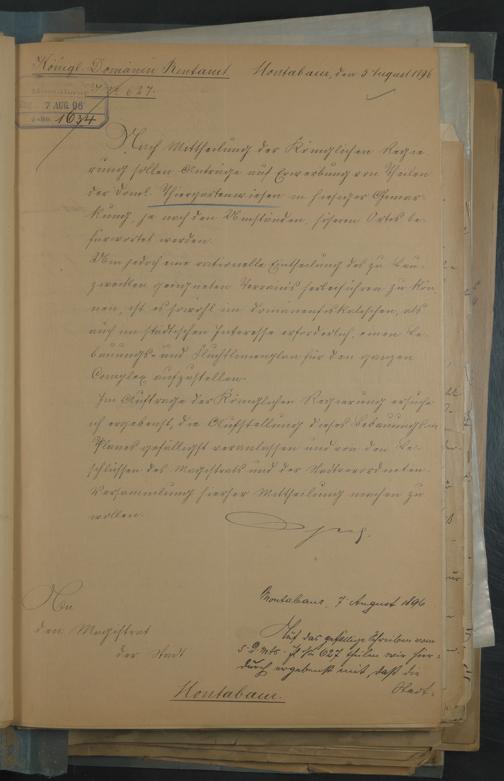 Königl. Domänen Rentamt Montabaur, den 5 August 1896
№ 627.
7 AUG. 96
J.-No. 1634
Nach Mittheilung der Königlichen Regie-
rung sollen Anträge auf Erwerbung von Theilen
der Dom. Thiergartenwiesen in hiesiger Gemar-
kung, je nach den Umständen, höheren Ortes be-
fürwortet werden.
Um jedoch eine rationelle Eintheilung des zu Bau-
zwecken geeigneten Terrains herbeiführen zu kön-
nen, ist es sowohl im domänenfiskalischen, als
auch im städtischen Interesse erforderlich, einen Be-
bauungs- und Fluchtlinienplan für den ganzen
Complex aufzustellen.
Im Auftrage der Königlichen Regierung ersuche
ich ergebenst, die Aufstellung dieses Bebauungs-
Planes gefälligst veranlassen und von den Be-
schlüssen des Magistrats und der Stadtverordneten-
Versammlung hierher Mittheilung machen zu
wollen.
An
den Magistrat
der Stadt
Montabaur.
Montabaur, 7 August 1896
Auf das gefällige Schreiben vom
5. d. Mts. № 627 theilen wir hier-
durch ergebenst mit, daß die
Stadt-